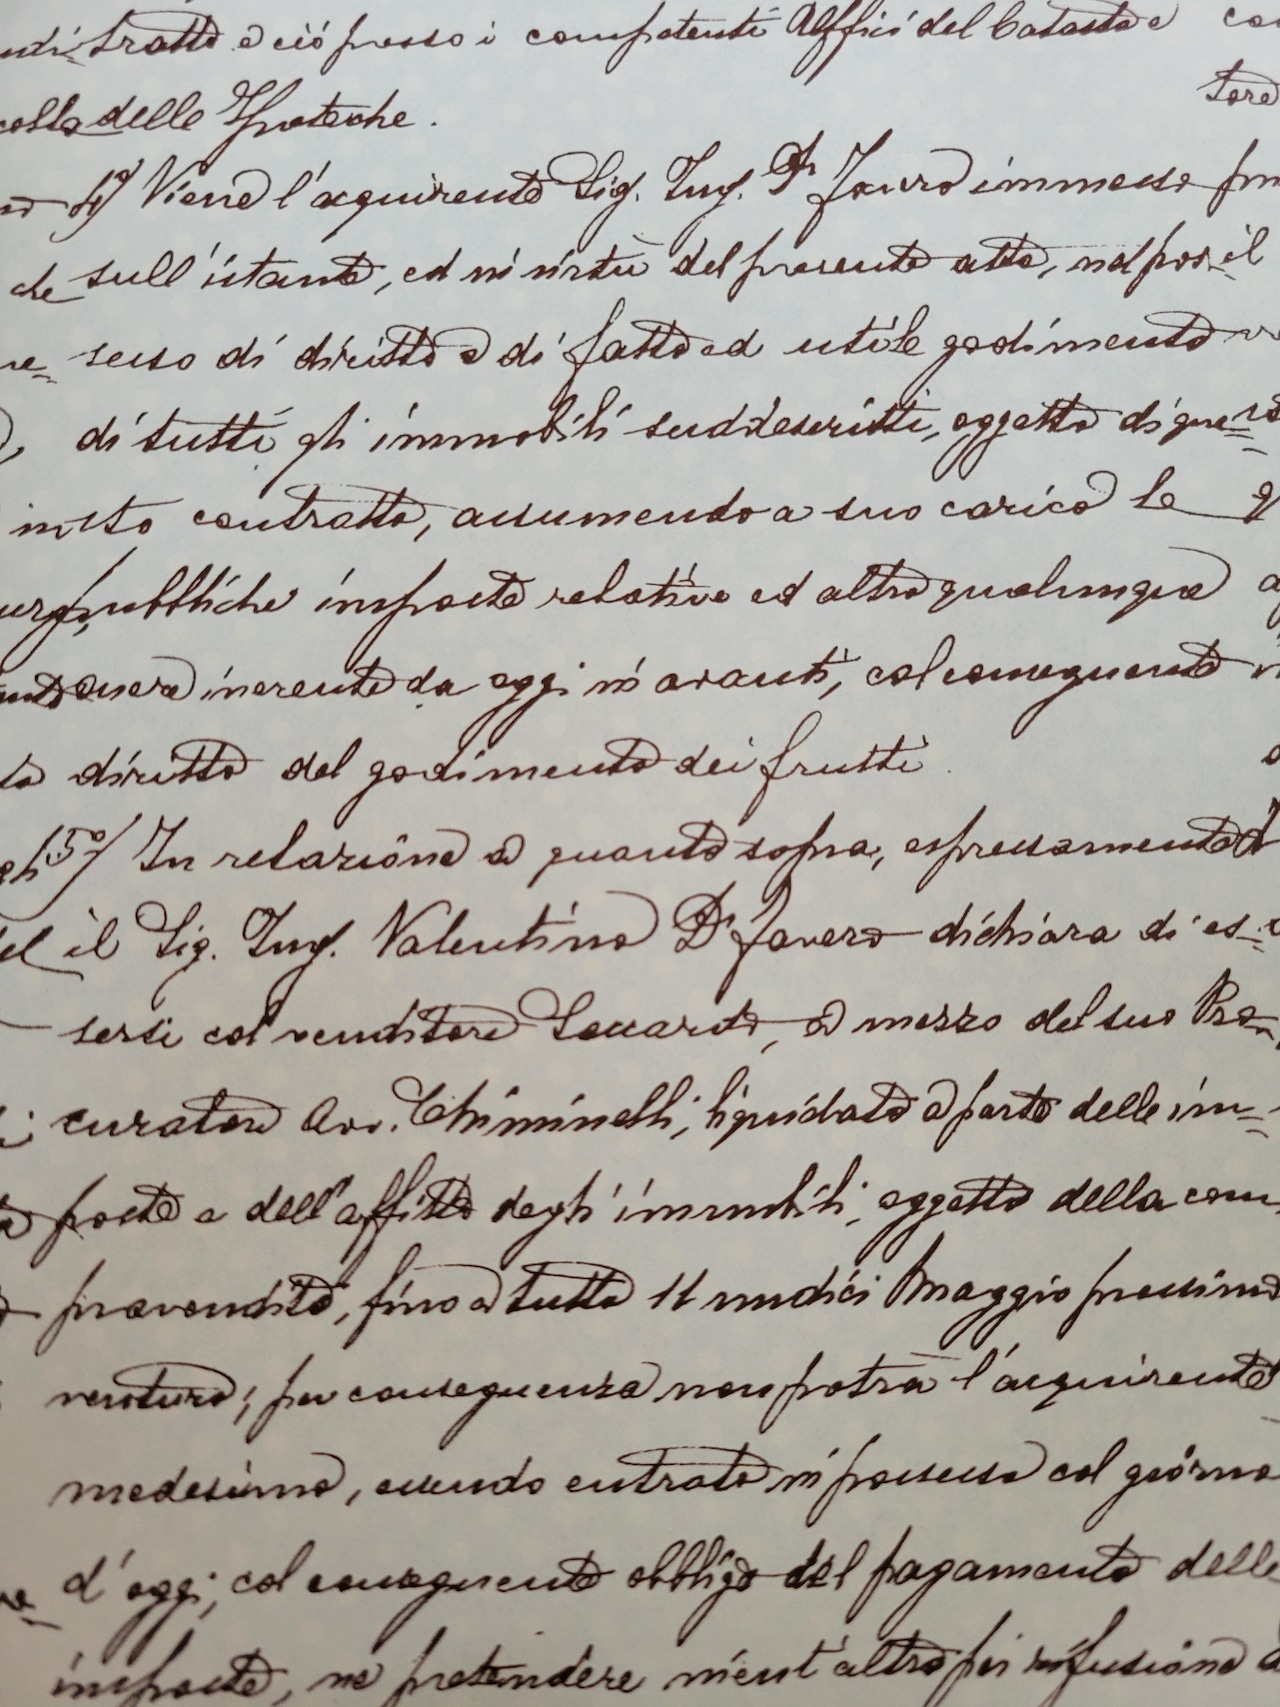 tratto e ciò presso i competenti Uffici del Catasto e
delle Ipoteche.
4°/ Viene l'acquirente Sig. Ing. Dr Favero immesso
sull'istante, ed in virtù del presente atto, nel pos-
sesso di diritto e di fatto ed utile godimento
di tutti gli immobili suddescritti, oggetto di que-
sto contratto, assumendo a suo carico le
pubbliche imposte relative ed altro qualunque
onere inerente da oggi in avanti, col conseguente
diritto del godimento dei frutti
5°/ In relazione a quanto sopra, espressamente
il Sig. Ing. Valentino Dr Favero dichiara di es-
sersi col venditore, a mezzo del suo Pro-
curatore Avv. Chiminelli, liquidato a parte delle im-
poste e dell'affitto degli immobili, oggetto della com
pravendita, fino a tutto 11 undici Maggio prossimo
venturo; per conseguenza non potrà l'acquirente
medesimo, essendo entrato in possesso col giorno
d'oggi, col conseguente obbligo del pagamento delle
imposte, ne pretendere nient'altro per rifusione